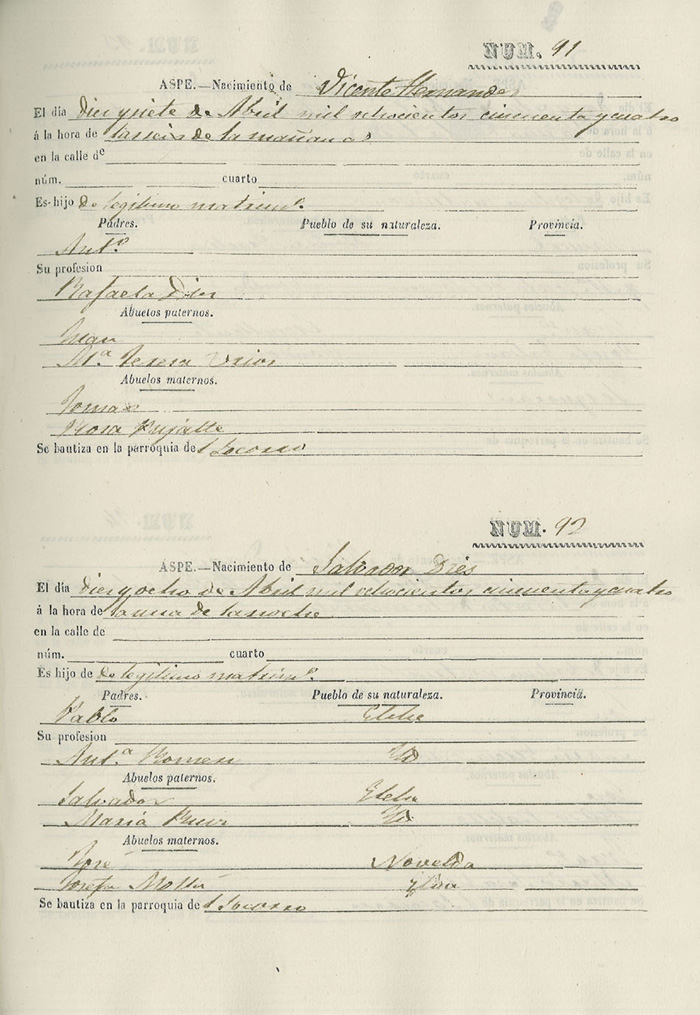 NUM. 91
ASPE.—Nacimiento de Vicente Hernandes
El día Diez y siete de Abril mil ochocientos cincuenta y cuatro
á la hora de las seis de la mañana
en la calle de
núm. cuarto
Es hijo de legitimo matrim.º
Padres. Pueblo de su naturaleza. Provincia.
Ant.º
Su profesion
Rafaela
Abuelos paternos.
Juan
M.ª Teresa
Abuelos maternos.
Tomas
Rosa
Se bautiza en la parroquia de l Socorro
NUM. 92
ASPE.—Nacimiento de Salvador Dies
El día Diez y ocho de Abril mil ochocientos cincuenta y cuatro
á la hora de la una de la noche
en la calle de
núm. cuarto
Es hijo de De legitimo matrim.º
Padres. Pueblo de su naturaleza. Provincia.
Pablo Elche
Su profesion
Ant.ª Romen Id
Abuelos paternos.
Salvador Elche
Maria Id
Abuelos maternos.
José Novelda
Josefa Mollá
Se bautiza en la parroquia de l Socorro